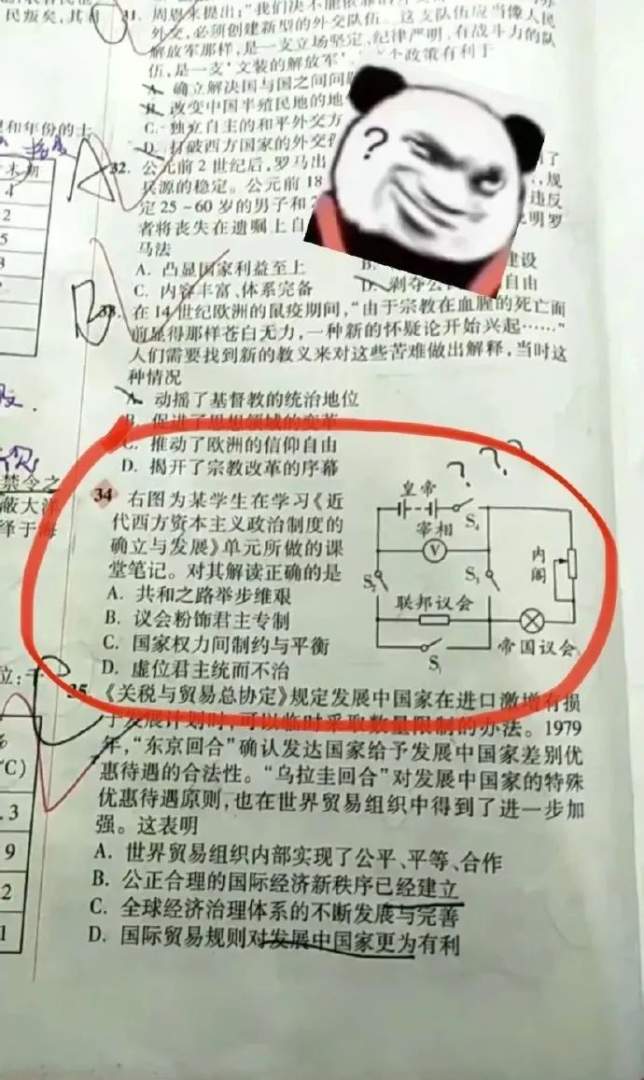 民叛矣,其
31. 周恩来提出:"我们决不能依靠
外交,必须创建新型的外交队伍。这支队伍应当像人民
解放军那样,是一支立场坚定、纪律严明,有战斗力的队
伍,是一支'文装的解放军'
个政策有利于
A. 确立解决国与国之间问
B. 改变中国半殖民地的地
C. 独立自主的和平外交方
D. 打破西方国家的外交孤
和年份的
A
32. 公元前 2 世纪后,罗马出
兵源的稳定。公元前 18
定 25~60 岁的男子和 2
违反
者将丧失在遗嘱上自
明罗
马法
A. 凸显国家利益至上
B.
建设
C. 内容丰富、体系完备
D. 剥夺公
自由
B
33. 在 14 世纪欧洲的鼠疫期间,"由于宗教在血腥的死亡面
前显得那样苍白无力,一种新的怀疑论开始兴起……"
人们需要找到新的教义来对这些苦难做出解释,当时这
种情况
A. 动摇了基督教的统治地位
B. 促进了思想领域的变革
C. 推动了欧洲的信仰自由
D. 揭开了宗教改革的序幕
?
? ? ?
34 右图为某学生在学习《近
代西方资本主义政治制度的
确立与发展》单元所做的课
堂笔记。对其解读正确的是
A. 共和之路举步维艰
B. 议会粉饰君主专制
C. 国家权力间制约与平衡
D. 虚位君主统而不治
皇帝
宰相
S₄
V
S₂
S₃
内阁
联邦议会
帝国议会
S₁
禁令之
蔽大
绎于海
35. 《关税与贸易总协定》规定发展中国家在进口激增有损
于发展计划时,可以临时采取数量限制的办法。1979
年,"东京回合"确认发达国家给予发展中国家差别优
惠待遇的合法性。"乌拉圭回合"对发展中国家的特殊
优惠待遇原则,也在世界贸易组织中得到了进一步加
强。这表明
A. 世界贸易组织内部实现了公平、平等、合作
B. 公正合理的国际经济新秩序已经建立
C. 全球经济治理体系的不断发展与完善
D. 国际贸易规则对发展中国家更为有利
℃)
.3
9
2
1